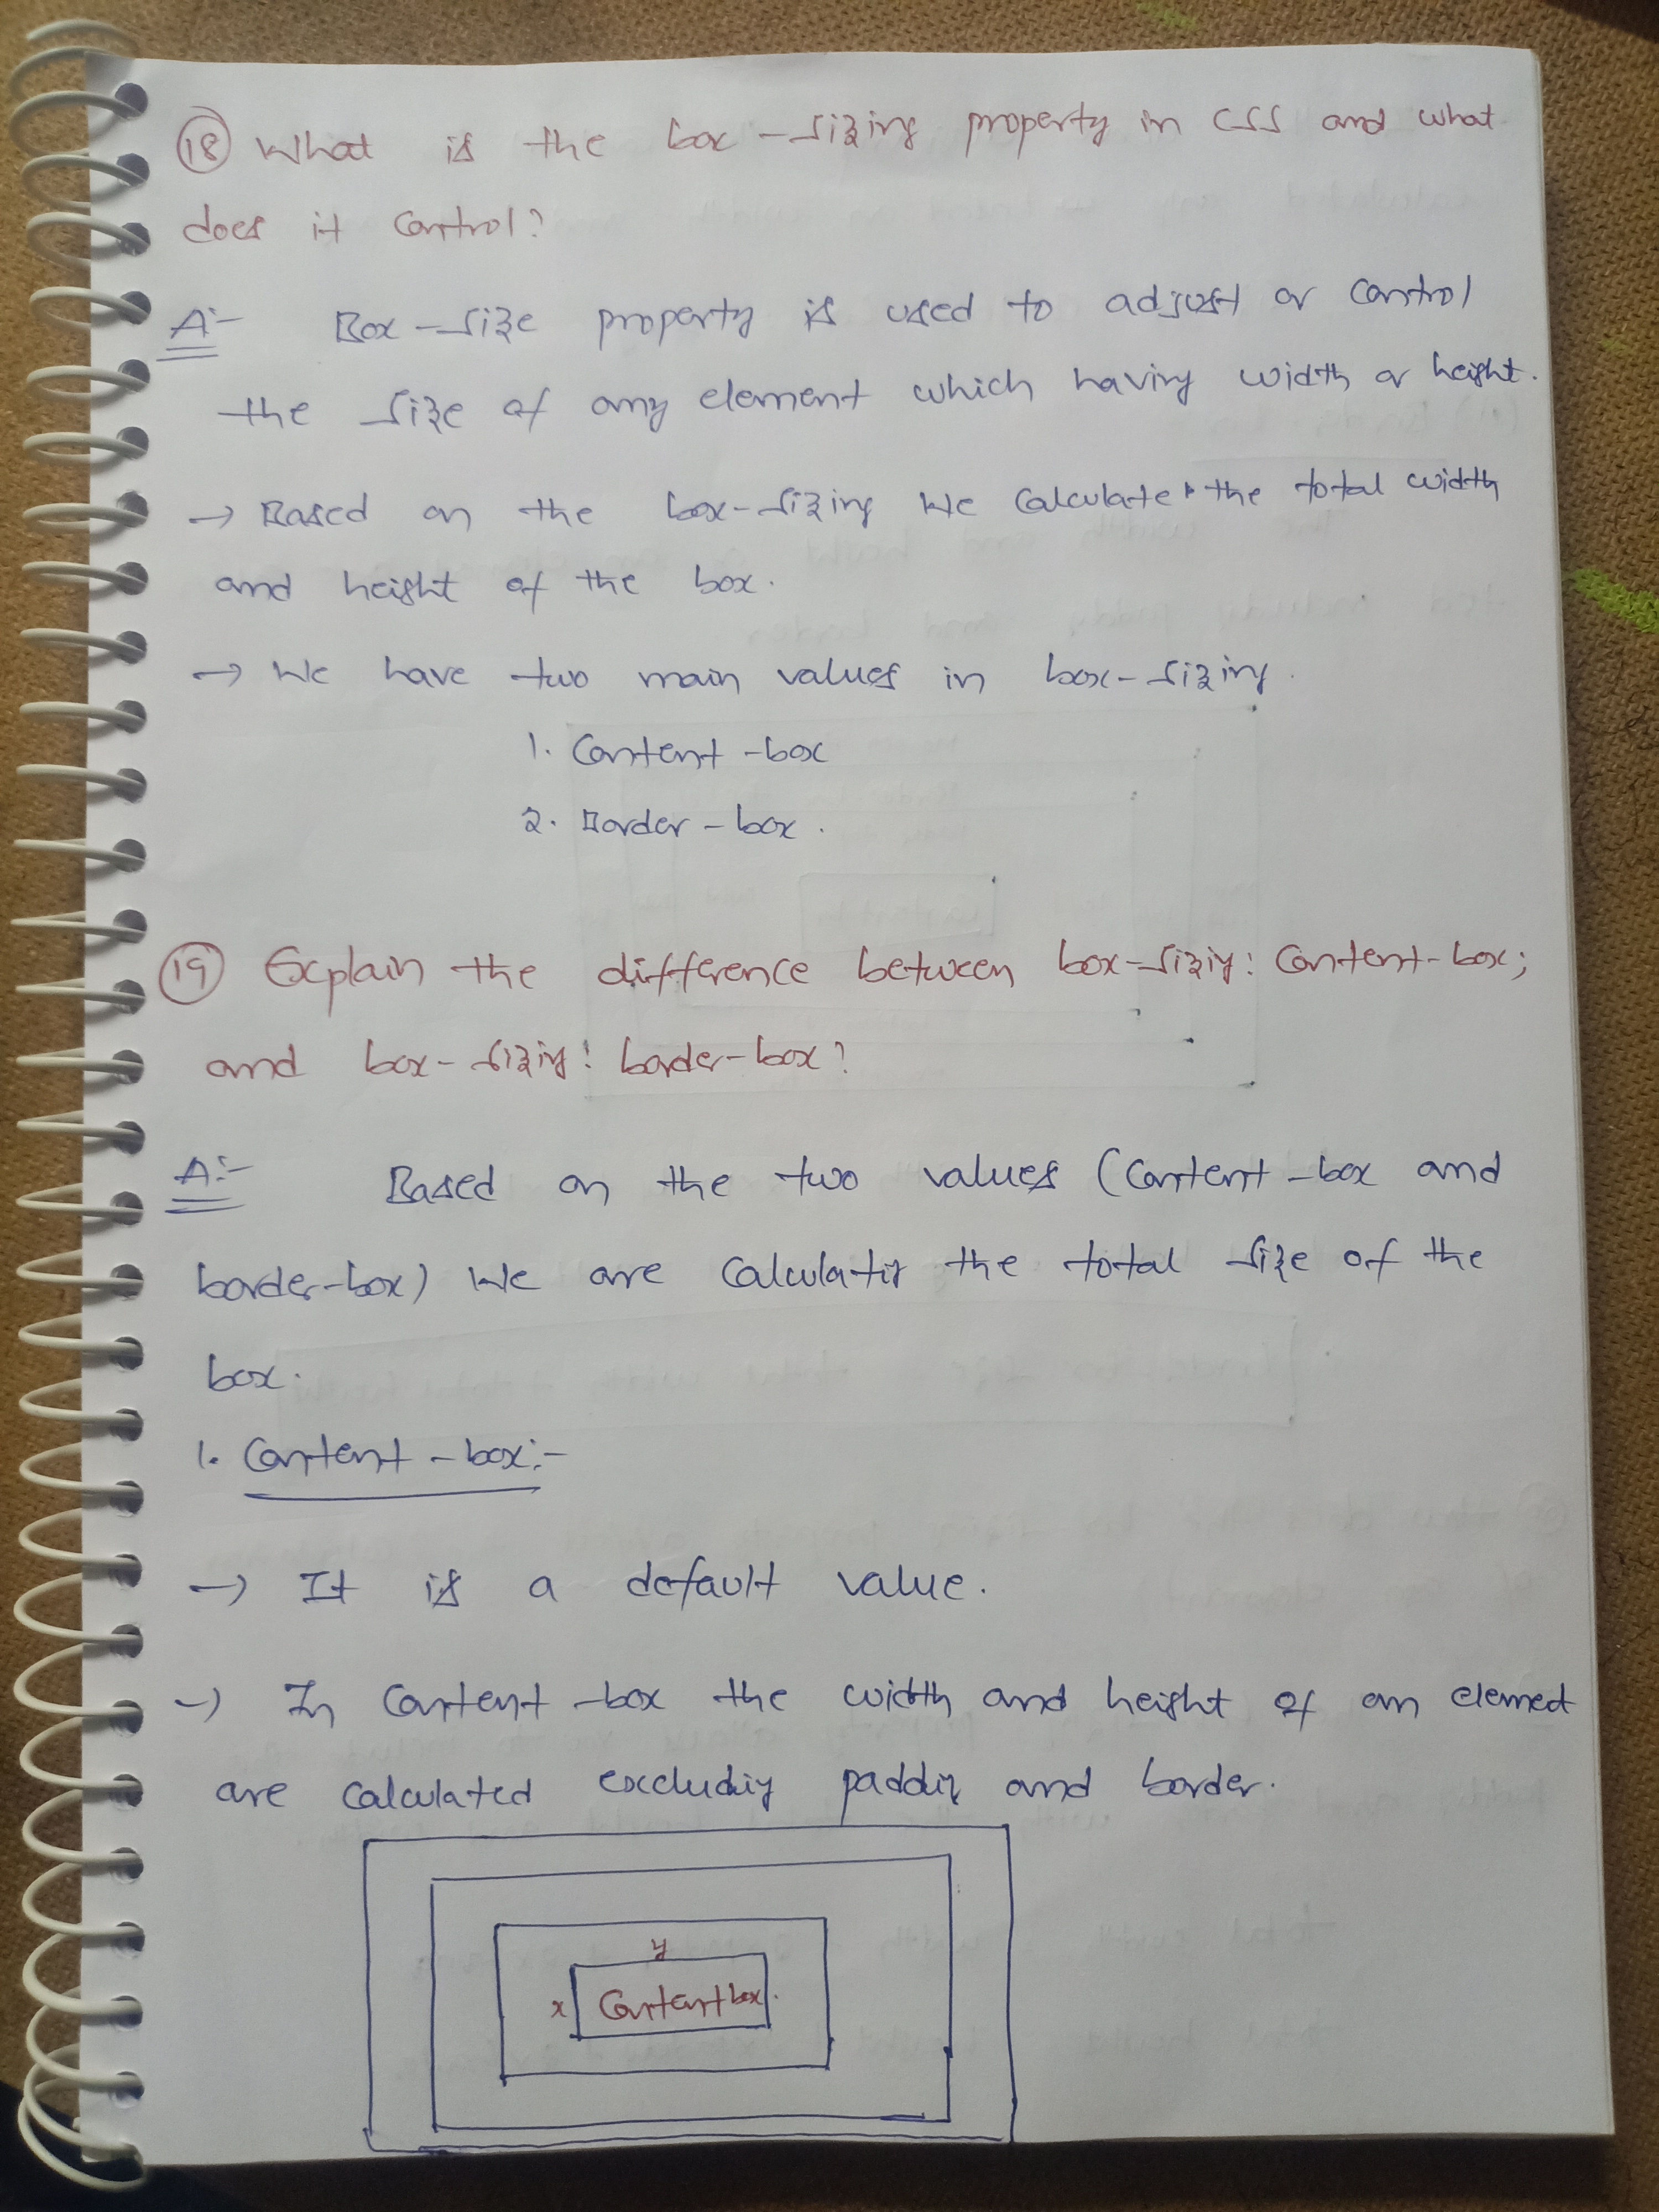 18 What is the box-sizing property in CSS and what
does it control?
A:- Box-size property is used to adjust or control
the size of any element which having width or height.
→ Based on the box-sizing We calculate the total width
and height of the box.
→ We have two main values in box-sizing.
1. Content-box
2. Border-box.
19 Explain the difference between box-sizing: Content-box;
and box-sizing: border-box?
A:- Based on the two values (Content-box and
border-box) We are calculating the total size of the
box.
1. Content-box:-
→ It is a default value.
→ In Content-box the width and height of an element
are calculated excluding padding and border.
y
x Content box.